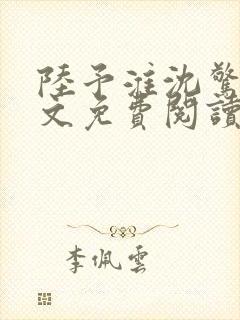 陸予淮沈驚
文免費閱讀
李佩雲